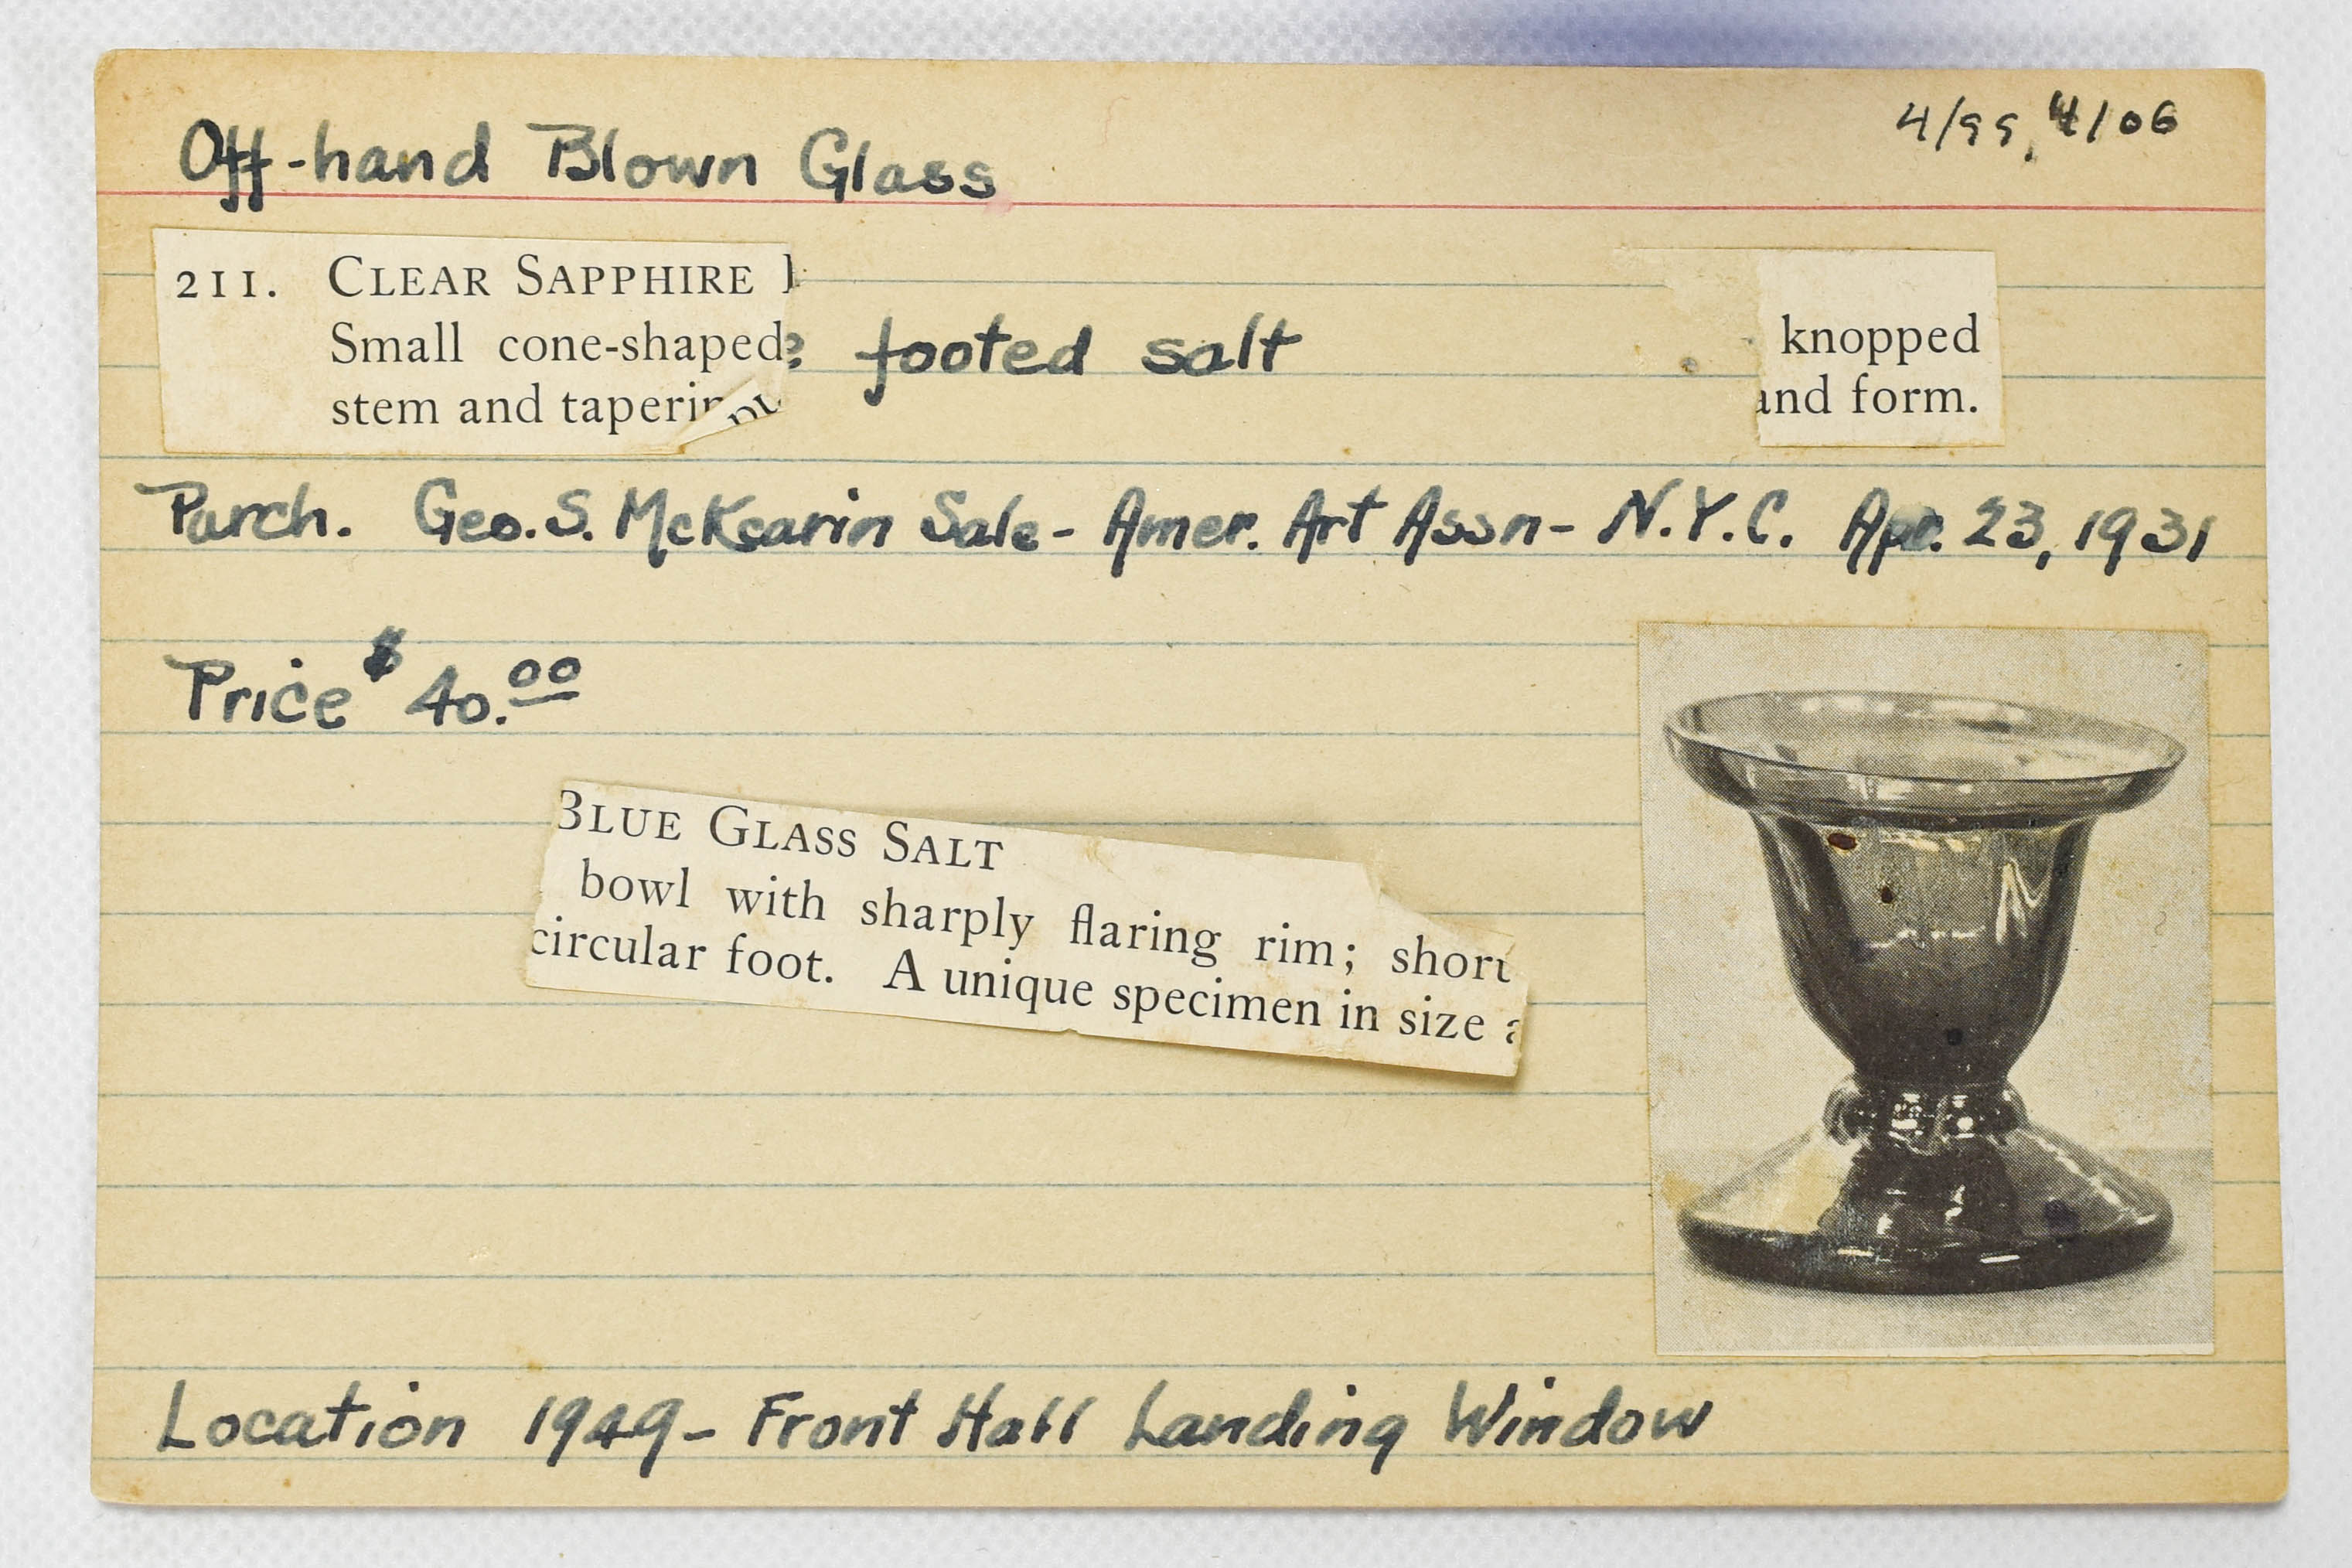 4/99, 4/06
Off-hand Blown Glass
211. CLEAR SAPPHIRE
Small cone-shaped footed salt knopped
stem and and form.
Purch. Geo. S. McKearin Sale - Amer. Art Assn - N.Y.C. Apr. 23, 1931
Price $ 40.00
BLUE GLASS SALT
bowl with sharply flaring rim; short
circular foot. A unique specimen in size
Location 1949 - Front Hall Landing Window